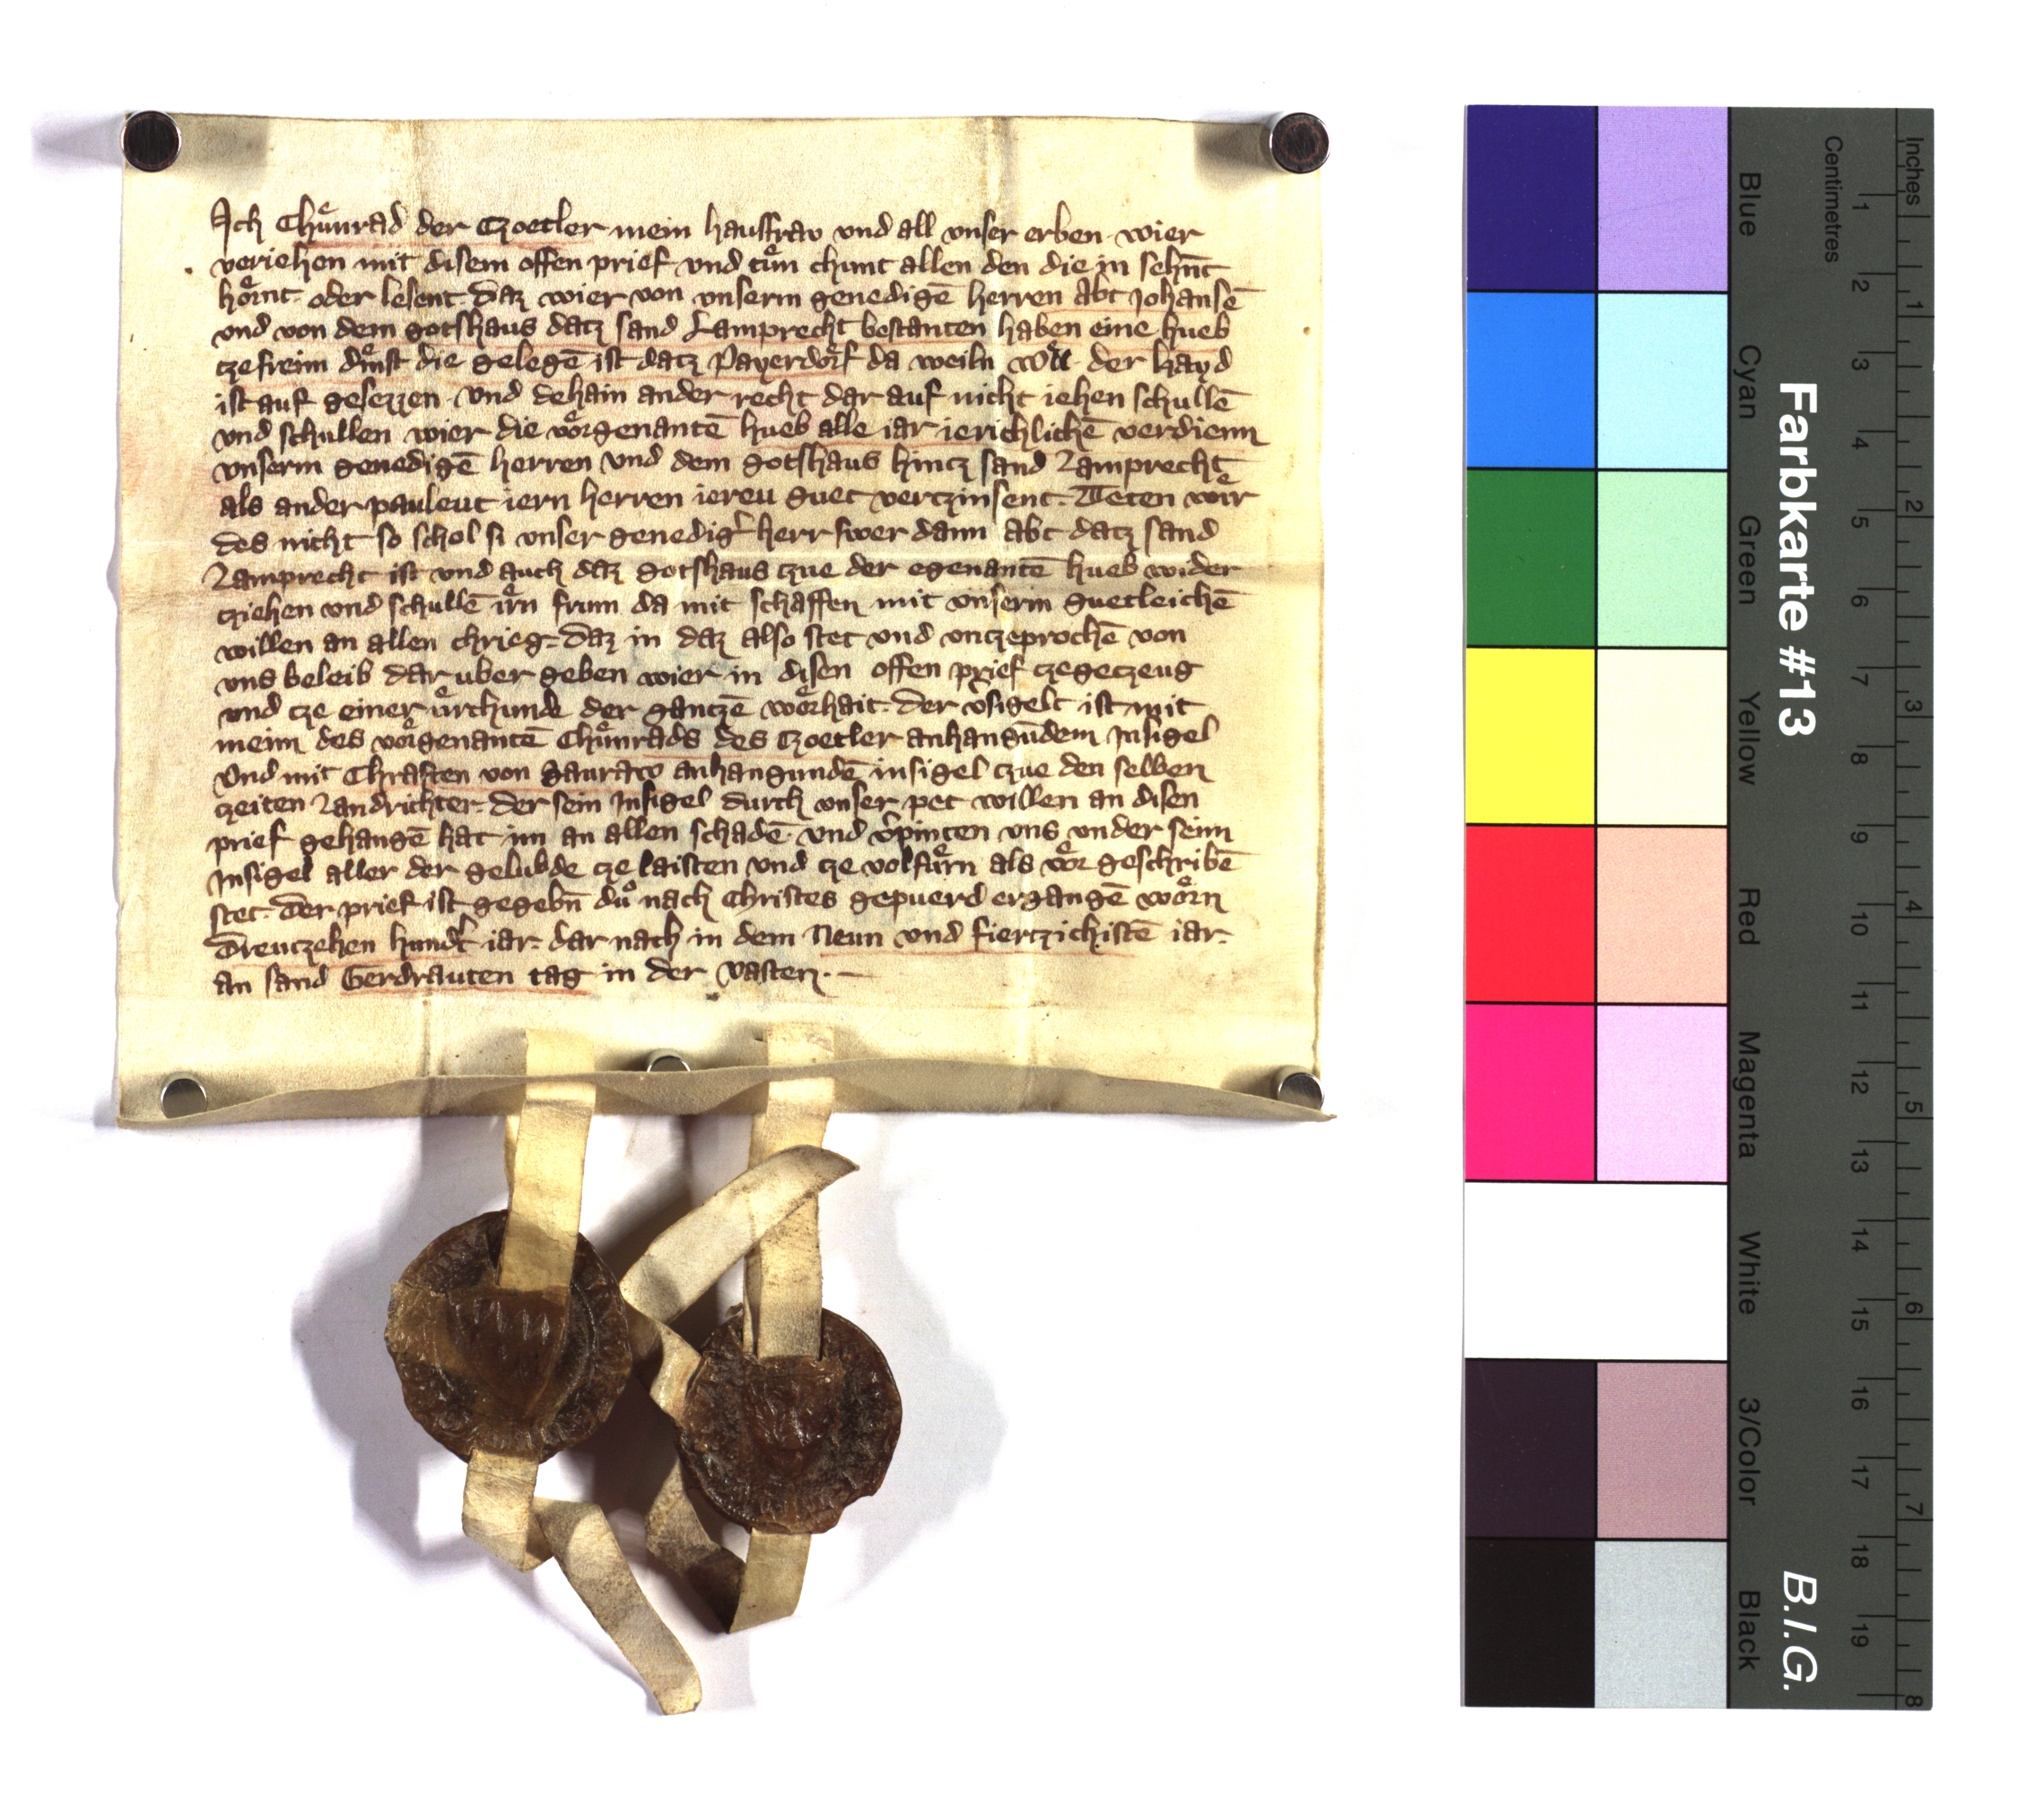 Ich Chuͤnrad der Czoetler mein hausfraw vnd all vnser erben wier
veriehen mit disem offen prief vnd tuͤn chunt allen den die in sehnt
hoͤrnt oder lesent daz wier von vnserm genedigē herren Abt Johansē
vnd von dem gotshaus datz sand Lamprecht bestanten haben eine hueb
tze freim dinst die gelegē ist datz Payerdorf da weiln der hayd
ist auf gesezzen vnd dehain ander recht dar auf nicht iehen schullē
vnd schullen wier die voͤrgenantē hueb alle iar ierichlichē verdienn
vnserm genedigē herren vnd dem gotshaus hintz sand Lamprecht
als ander pauleut iern herren iereu guet vertzinsent. Teten wir
des nicht so schol si vnser genedigͬ herr swer dann Abt datz sand
Lamprecht ist vnd auch daz gotshaus tzue der egenantē hueb wider
tziehen vnd schullē irn frum da mit schaffen mit vnserm guetleichē
willen an allen chrieg. daz in daz also stet vnd vntzeprochē von
vns beleib dar uber geben wier in disen offen prief tze getzeug
vnd tze einer uͤrchunde der gantzē woͤrhait. der v̓sigelt ist mit
meim des voͤrgenantē Chuͤnrads des Czoetler anhangūdem Jnsigel
Vnd mit Chraften von Sauraw anhangundē insigel tzue den selben
tzeiten Landrichter. der sein Jnsigel durch vnser pet willen an disen
prief gehangē hat im an allen schadē. vnd v̓pinten vns vnder seim
Jnsigel aller der gelubde tze laisten vnd tze volfuͤrn als voͤr geschribē
stet. Der prief ist gegebn̄ duͦ nach Christes gepuerd ergangē woͤrn
Dreutzehen hundͭ iar. dar nach in dem Neun vnd fiertzichistē iar.
an sand Gerdrauten tag in der Vasten.
Farbkarte #13
B.I.G.
Blue
Cyan
Green
Yellow
Red
Magenta
White
3/Color
Black
Centimetres
1 2 3 4 5 6 7 8 9 10 11 12 13 14 15 16 17 18 19
Inches
1 2 3 4 5 6 7 8